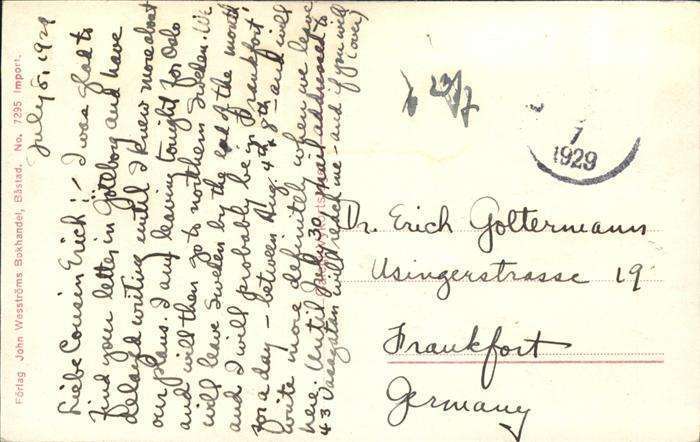 July 5, 1929
Liebe Cousin Erich! - I was glad to
find your letter in Göteborg and have
delayed writing until I knew more about
our plans. I am leaving tonight for Oslo
and will then go to northern Sweden. We
will leave Sweden by the end of the month
and I will probably be in Frankfort
for a day - between Aug. 4th - 8th - and will
write more definitely when we leave
here. Until July 30, mail addressed to
43 Vasagatan will reach me - and if you will
(over)
Förlag John Wesströms Bokhandel, Båstad. No. 7295 Import.
23/7
7
1929
Dr. Erich Goltermann
Usingerstrasse 19
Frankfort
Germany